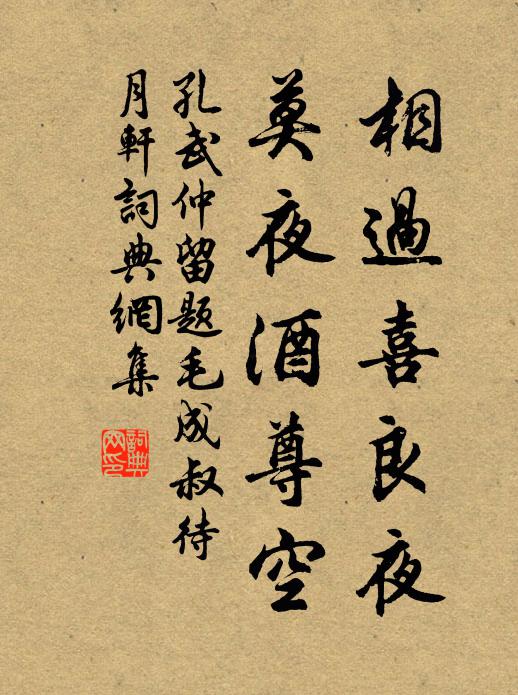 相過喜良夜
莫夜酒尊空
孔武仲留題毛成叔待
月軒詞典網集
詞典網印